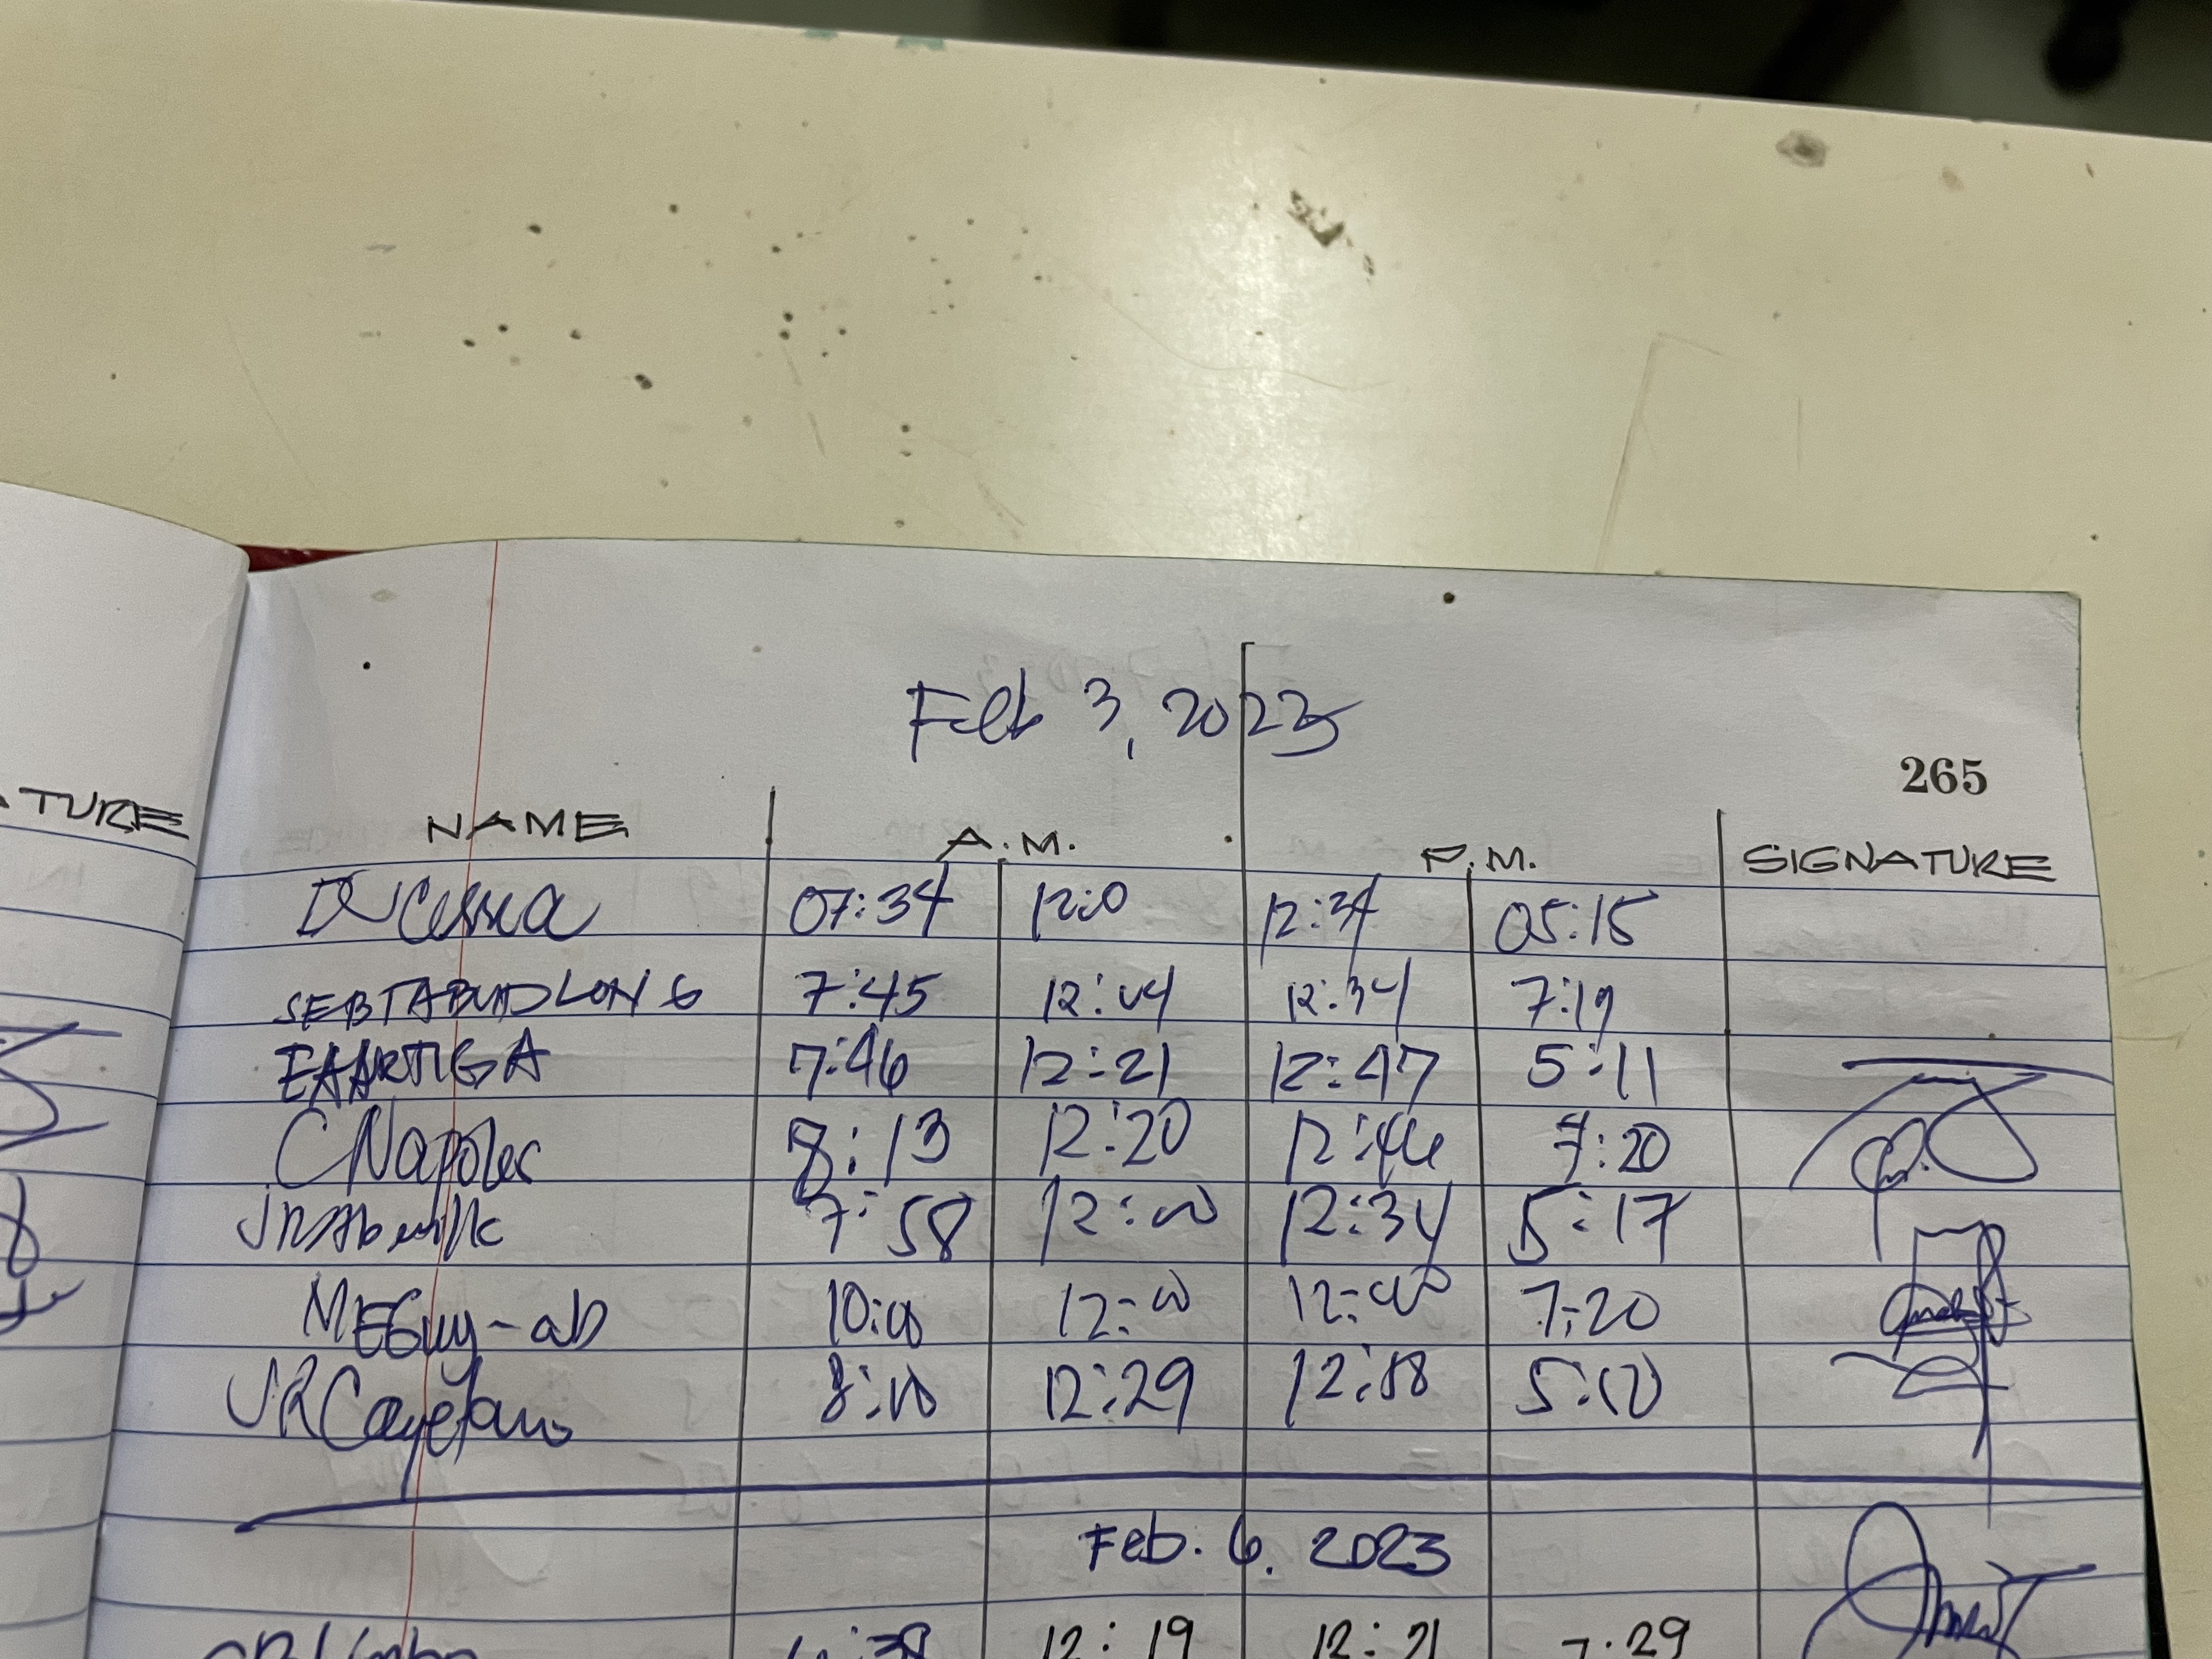 Feb 3, 2023
265
TURE
NAME A.M. P.M. SIGNATURE
07:34 12:0 12:34 05:15
SEBTABUDLONG 7:45 12:04 12:34 7:19
EAARTIGA 7:46 12:21 12:47 5:11
CNapoles 8:13 12:20 12:46 7:20
7:58 12:00 12:34 5:17
MEGuy-ab 10:00 12:00 12:00 7:20
JRCayetano 8:00 12:29 12:58 5:10
Feb. 6. 2023
12:19 12:21 7:29